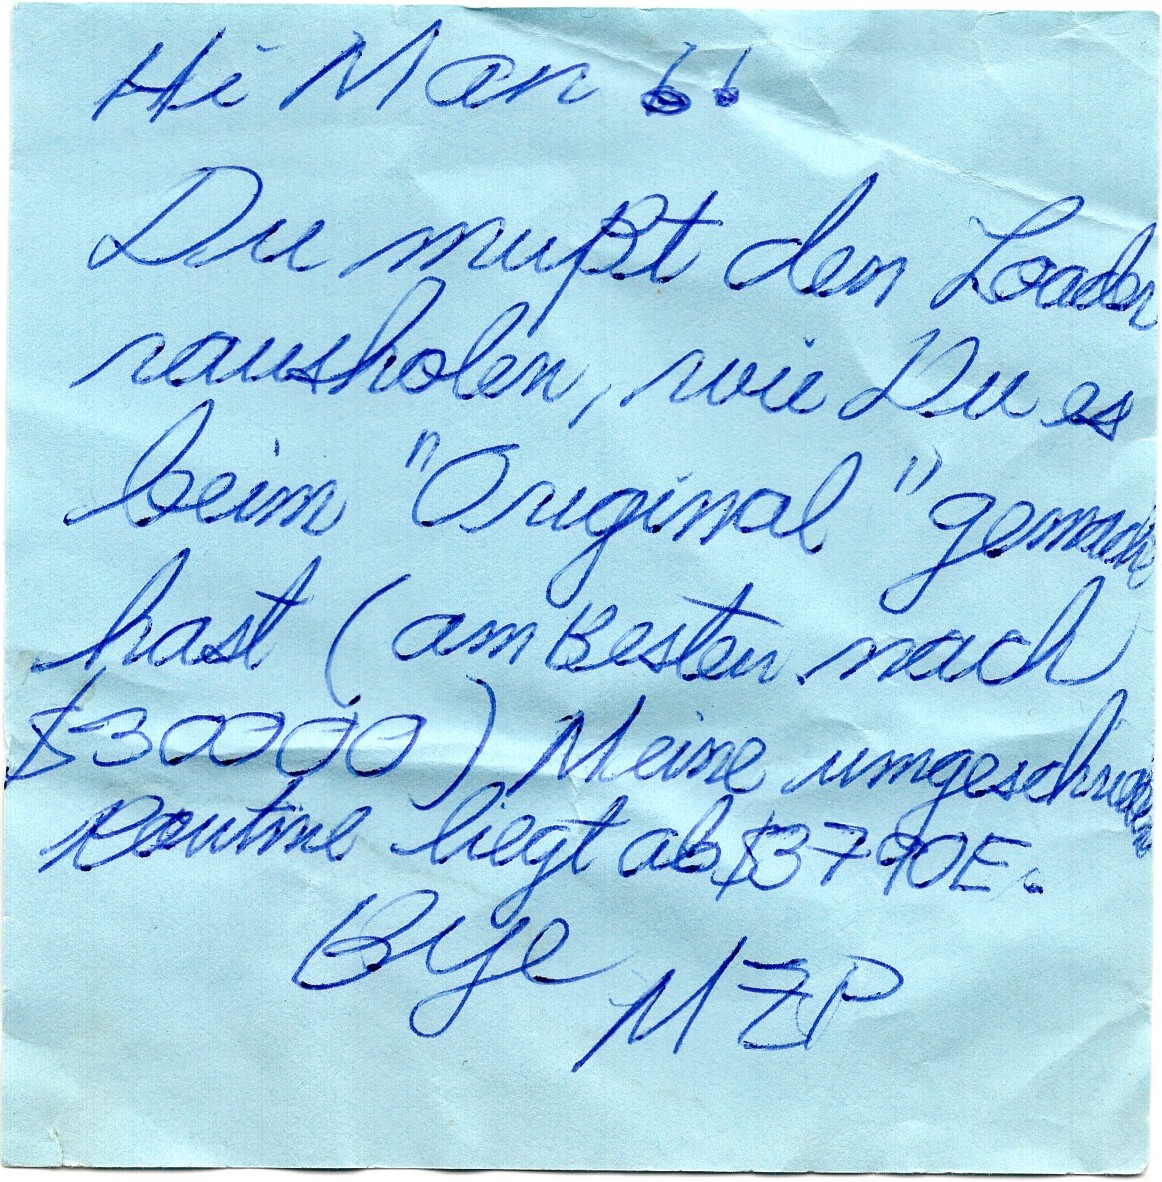 Hi Man !!
Du mußt den Loader
rausholen, wie Du es
beim "Original" gemacht
hast (am Besten nach
$30000) Meine umgeschriebene
Routine liegt ab $3790E.
Bye MZP